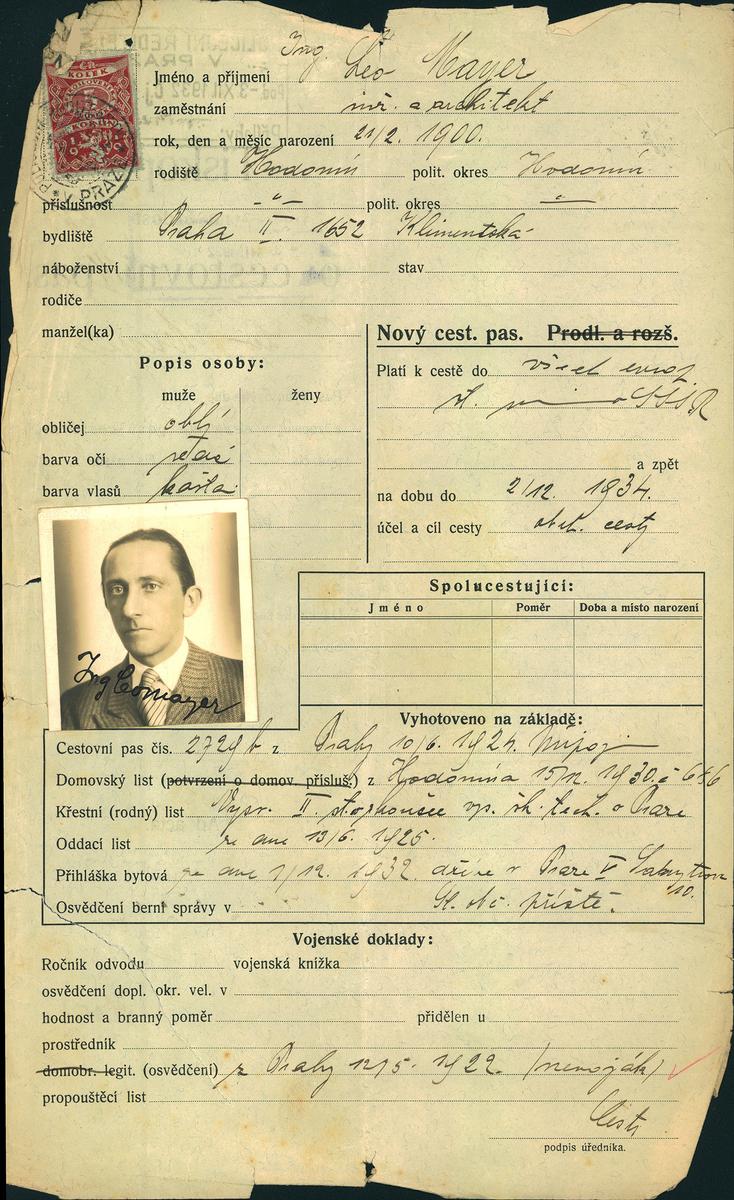 KOLEK
V PRAZE
Jméno a příjmení Ing. Leo Mayer
zaměstnání inž. a architekt
rok, den a měsíc narození 21/2. 1900.
rodiště Hodonín polit. okres Hodonín
příslušnost -"- polit. okres -"-
bydliště Praha II. 1652 Klimentská
náboženství stav
rodiče
manžel(ka)
Nový cest. pas. Prodl. a rozš.
Popis osoby:
muže ženy
obličej oblý
barva očí šedé
barva vlasů kašta
Platí k cestě do všech evrop.
st. mimo SSSR
a zpět
na dobu do 2/12. 1934.
účel a cíl cesty obch. cesty
Ing Leo Mayer
Spolucestující:
Jméno Poměr Doba a místo narození
Vyhotoveno na základě:
Cestovní pas čís. 2729/b z Prahy 10/6. 192
Domovský list (potvrzení o domov. přísluš.) z Hodonína 15/12. 1930. č 686
Křestní (rodný) list Vysv. II. st. zkoušce vys. šk. tech. v Praze
Oddací list ze dne 13/6. 1925.
Přihláška bytová ze dne 1/12. 1932. dříve v Praze V
10.
Osvědčení berní správy v St. obč. příště.
Vojenské doklady:
Ročník odvodu vojenská knížka
osvědčení dopl. okr. vel. v
hodnost a branný poměr přidělen u
prostředník
domobr. legit. (osvědčení) z Prahy 12/5. 1922. (nevoják)
propouštěcí list
podpis úředníka.